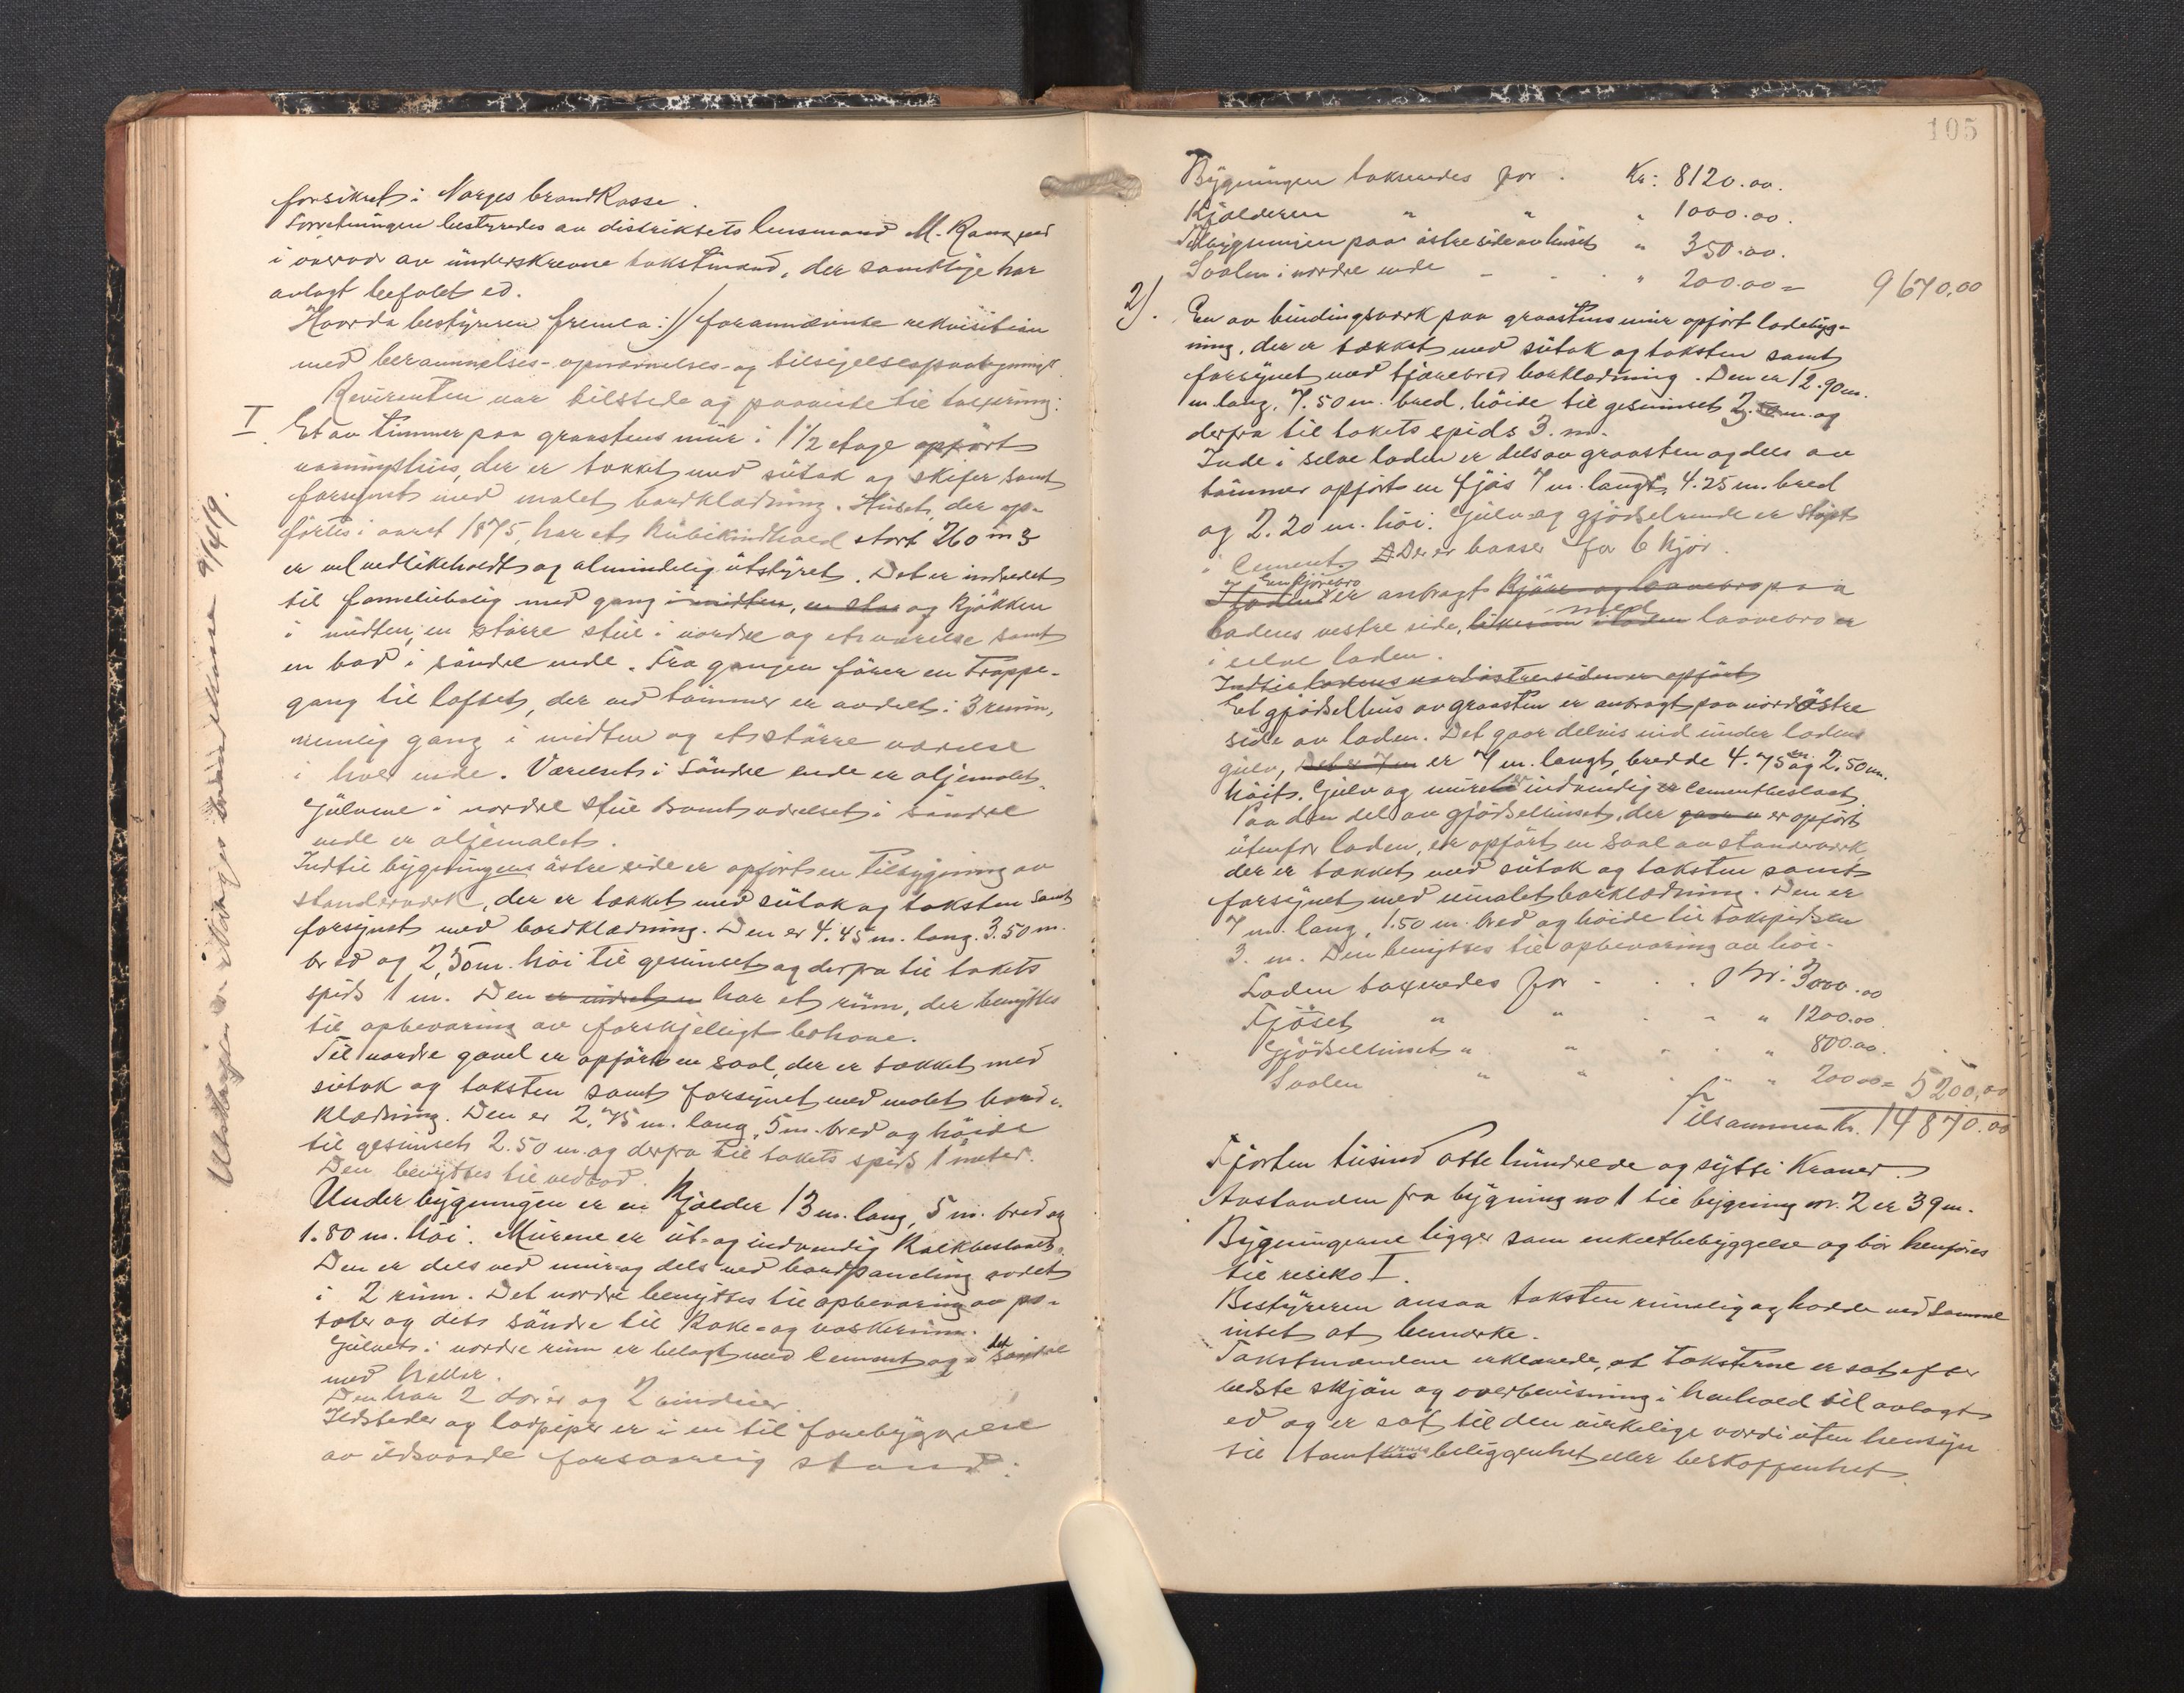 forsikret i Norges brandkasse.
Forretningen bestyredes av distriktets lensmand M. Ramsgrd
i nærvær av underskrevne takstmænd, der samtlige har
avlagt befalet ed.
Hvorda bestyreren fremla: 1/ forannævnte rekvisition
med berammelses- opnævnelses- og tilsigelsespaategning
Revirenten var tilstede og paaviste til taxering:
I. Et av tømmer paa graastens mur i 1 1/2 etage opført
vaaningshus, der er tækket med sutak og skifer samt
forsynet med malet bordklædning. Huset, der op-
førtes i aaret 1875, har et kubikindhold stort 260 m3
er vel vedlikeholdt og almindelig utstyret. Det er indredet
til familiebolig med gang i midten, en stue og kjøkken
i midten, en større stue i nordre og et værelse samt
en bod i søndre ende. Fra gangen fører en trappe-
gang til loftet, der ved tømmer er avdelt i 3 rum,
nemlig gang i midten og et større værelse
i hver ende. Værelset i søndre ende er oljemalet.
Gulvene i nordre stue samt værelset i søndre
ende er oljemalet.
Indtil bygningens østre side er opført en tilbygning av
standerverk, der er tækket med sutak og taksten samt
forsynet med bordklædning. Den er 4.45 m. lang. 3.50 m.
bred og 2,50 m. høi til gesimset og derfra til takets
spids 1 m. Den er indredet har et rum, der benyttes
til opbevaring av forskjelligt behove.
Til nordre gavel er opført en sval, der er tækket med
sutak og taksten samt forsynet med malet bord-
klædning. Den er 2,75 m. lang, 5 m. bred og høide
til gesimset 2.50 m. og derfra til takets spids 1 meter.
Den benyttes til vedbod.
Under bygningen er en kjælder 13 m. lang, 5 m. bred og
1.80 m. høi. Murene er ut- og indvendig kalkbeslaat.
Den er dels ved mur og dels ved bordpaneling avdelt
i 2 rum. Det nordre benyttes til opbevaring av po-
teter og det søndre til bake- og vaskerum.
Gulvet i nordre rum er belagt med cement og i det søndre
med heller.
Den har 2 dører og 2 vinduer.
Ildsteder og ladpiper er i en til forebyggelse
av ildsvaade forsvarlig stand:
Utskrift Norges brandkasse 9/4 19.
105
Bygningen takseredes for . Kr: 8120.00.
Kjælderen " " " 1000.00.
Tilbygningen paa østre side av huset " 350.00.
Svalen i nordre ende - - . " 200.00 = 9670,00
2). En av bindingsverk paa graastens mur opført ladebyg-
ning, der er tækket med sutak og taksten samt
forsynet med tjærebred bordklædning. Den er 12.90 m.
m. lang, 7.50 m. bred, høide til gesimset 2.50 m. og
derfra til takets spids 3. m.
Inde i selve laden er dels av graasten og dels av
tømmer opført en fjøs 7 m. langt, 4.25 m. bred
og 2.20 m. høi. Gulv og gjødselrende er støpt
i cement. Der er baaser for 6 kjør.
I laden En kjørebro er anbragt kjøre- og laavebro paa
ladens vestre side, likesom i laden med laavebro er
i selve laden.
Indtil ladens nordøstre side er opført
Et gjødselhus av graasten er anbragt paa nordøstre
side av laden. Det gaar delvis ind under ladens
gulv, Det er 7 m er 7 m. langt, bredde 4.75 m og 2.50 m.
høit. Gulv og murene indvendig er cementbeslaat.
Paa den del av gjødselhuset, der gaar u er opført
utenfor laden, er opført en sval av standerverk
der er tækket med sutak og taksten samt
forsynet med umalet bordklædning. Den er
7 m. lang, 1.50 m. bred og høide til takspidsen
3. m. Den benyttes til opbevaring av høi.
Laden taxeredes for - . . Kr: 3000.00
Fjøset " " . - " 1200.00.
Gjødselhuset " " . . " 800.00.
Svalen " " . " " 200.00 = 5200,00
Tilsammen Kr. 14870.00
Fjorten tusind otte hundrede og sytti kroner.
Avstanden fra bygning no 1 til bygning nr. 2 er 39 m.
Bygningerne ligger som enkeltbebyggelse og bør henføres
til risiko I.
Bestyreren ansaa taksten rimelig og hadde ved samme
intet at bemerke.
Takstmændene erklærede, at taksterne er sat efter
bedste skjøn og overbevisning i henhold til avlagt
ed og er sat til den virkelige værdi uten hensyn
til tomternes beliggenhet eller beskaffenhet.